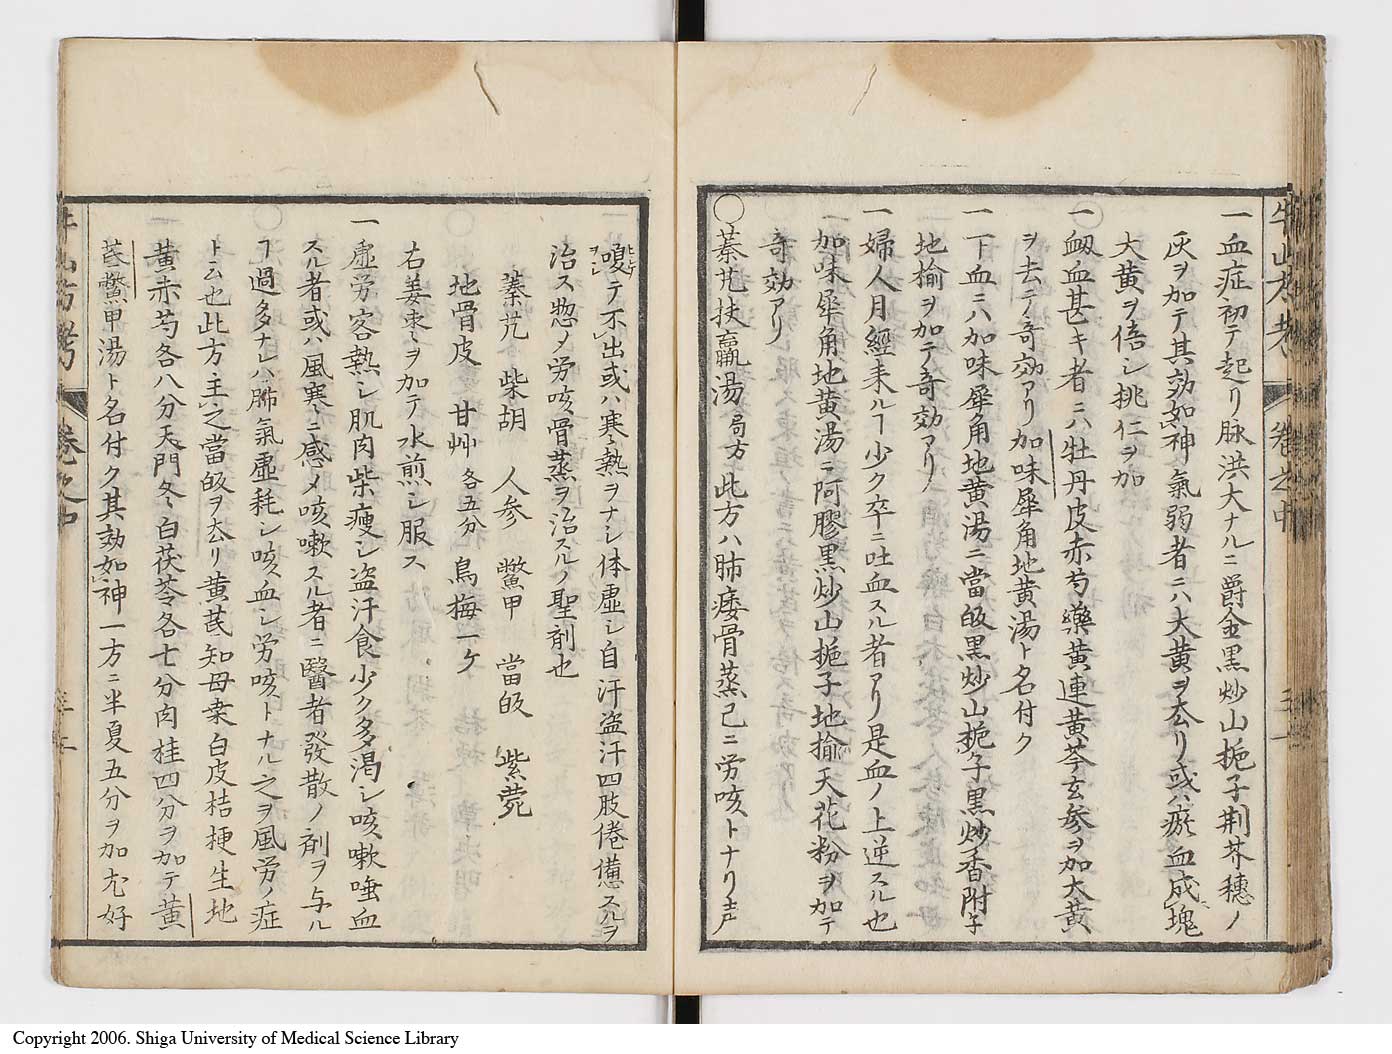 一血症初テ起リ脉洪大ナルニ欝金黒炒山梔子荆芥穗ノ
灰ヲ加テ其効如神氣弱者ニハ大黄ヲ去リ或ハ瘀血成塊
大黄ヲ倍シ桃仁ヲ加
一衂血甚キ者ニハ牡丹皮赤芍藥黄連黄芩玄參ヲ加大黄
ヲ去テ奇効アリ加味犀角地黄湯ト名付ク
一下血ニハ加味犀角地黄湯ニ當皈黒炒山梔子黒炒香附子
地榆ヲ加テ奇効アリ
一婦人月經来ルヿ少ク卒ニ吐血スル者アリ是血ノ上逆スル也
加味犀角地黄湯ニ阿膠黒炒山梔子地榆天花粉ヲ加テ
奇効アリ
○蓁艽扶羸湯 局方 此方ハ肺痿骨蒸已ニ労咳トナリ声
嗄テ不出或ハ寒熱ヲナシ体虚シ自汗盗汗四肢倦憊スルヲ
治ス惣メ労咳骨蒸ヲ治スルノ聖剤也
蓁艽 柴胡 人参 鱉甲 當皈 紫菀
地骨皮 甘艸 各五分 烏梅一ケ
右姜枣ヲ加テ水煎シ服ス
一虚労客熱シ肌肉柴瘦シ盗汗食少ク多渇シ咳嗽唾血
スル者或ハ風寒ニ感メ咳嗽スル者ニ醫者發散ノ剤ヲ与ル
ヿ過多ナレハ肺氣虚耗シ咳血シ労咳トナル之ヲ風労ノ症
ト云也此方主之當皈ヲ去リ黄芪知母桒白皮桔梗生地
黄赤芍各八分天門冬白茯苓各七分肉桂四分ヲ加テ黄
芪鱉甲湯ト名付ク其効如神一方ニ半夏五分ヲ加尤好
牛山方考 卷之中
牛山方考 卷之中